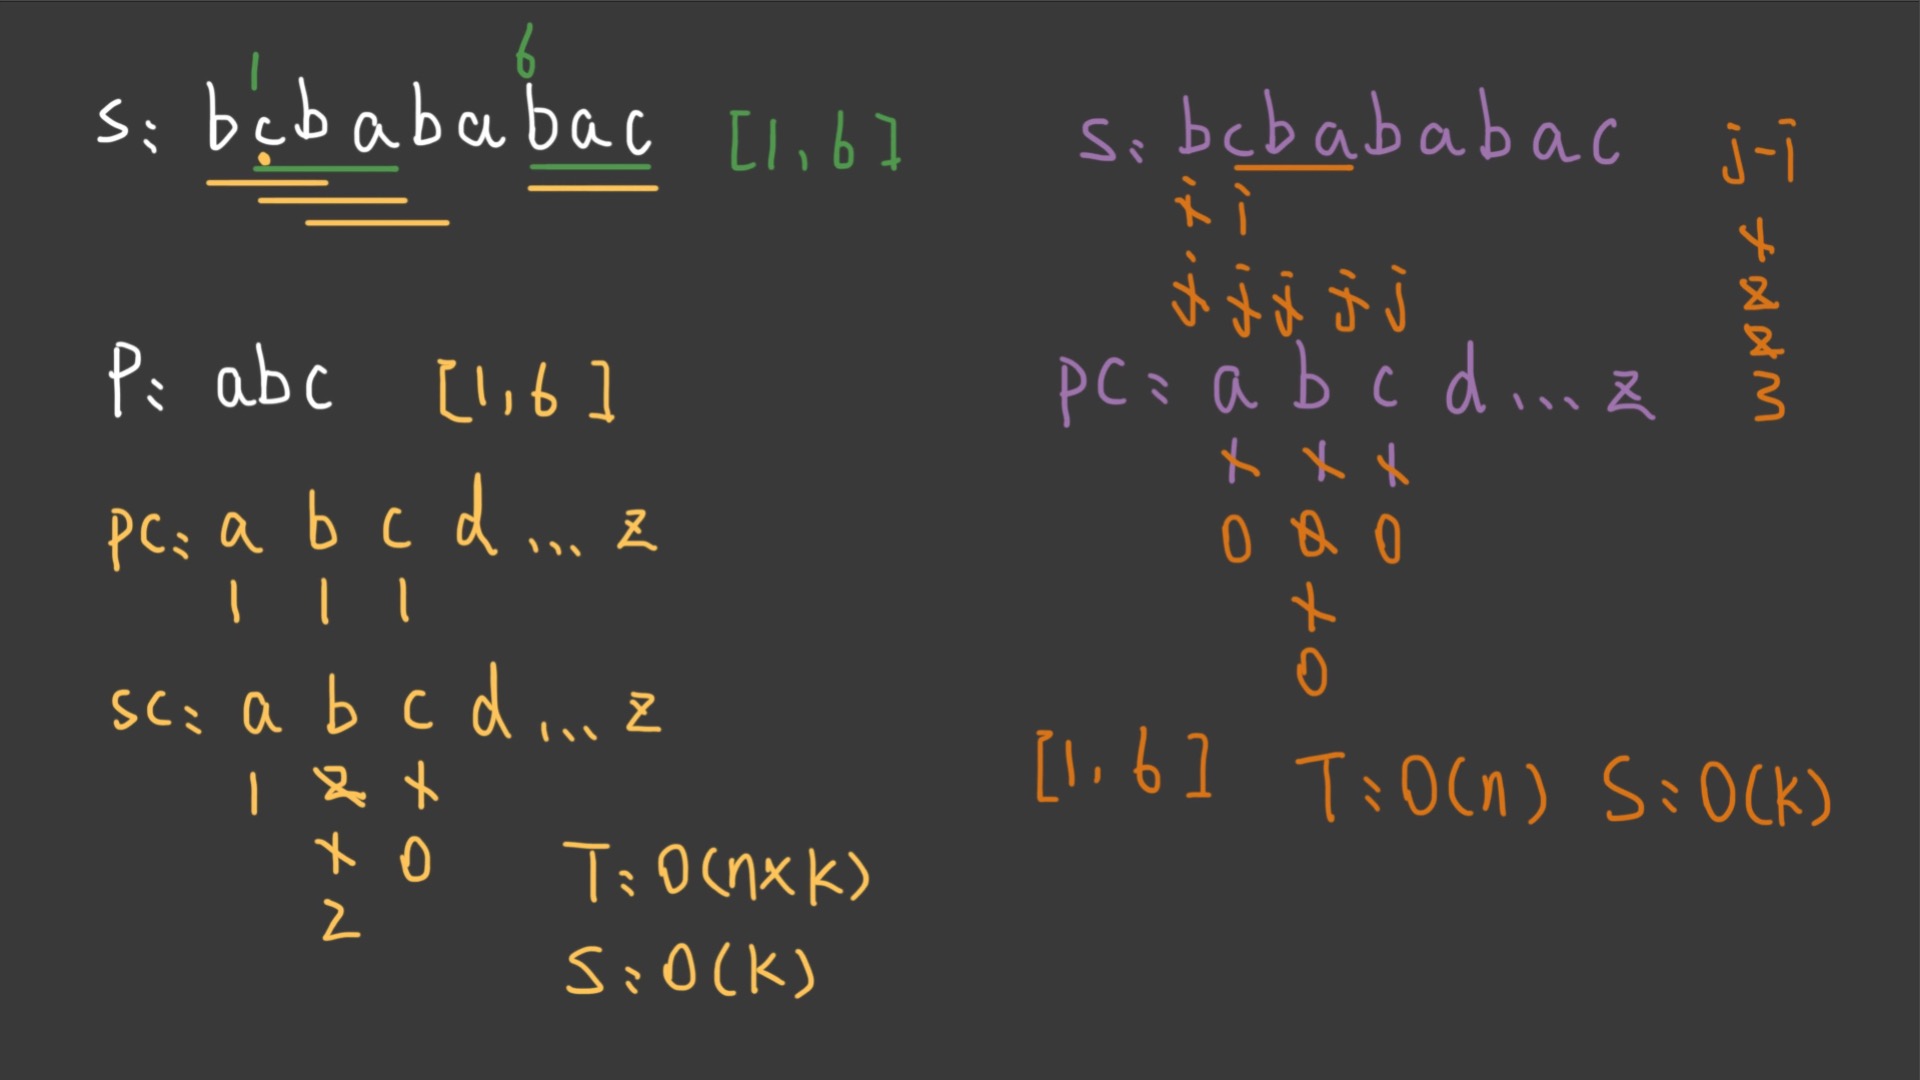 1 6
s: bcbababac [1,6]
p: abc [1,6]
pc: a b c d ... z
1 1 1
sc: a b c d ... z
1 2 1
1 0
2
T: O(n×k)
S: O(k)
s: bcbababac
i i
j j j j j
j-i
1
2
2
3
pc: a b c d ... z
1 1 1
0 0 0
1
0
[1,6] T: O(n) S: O(k)